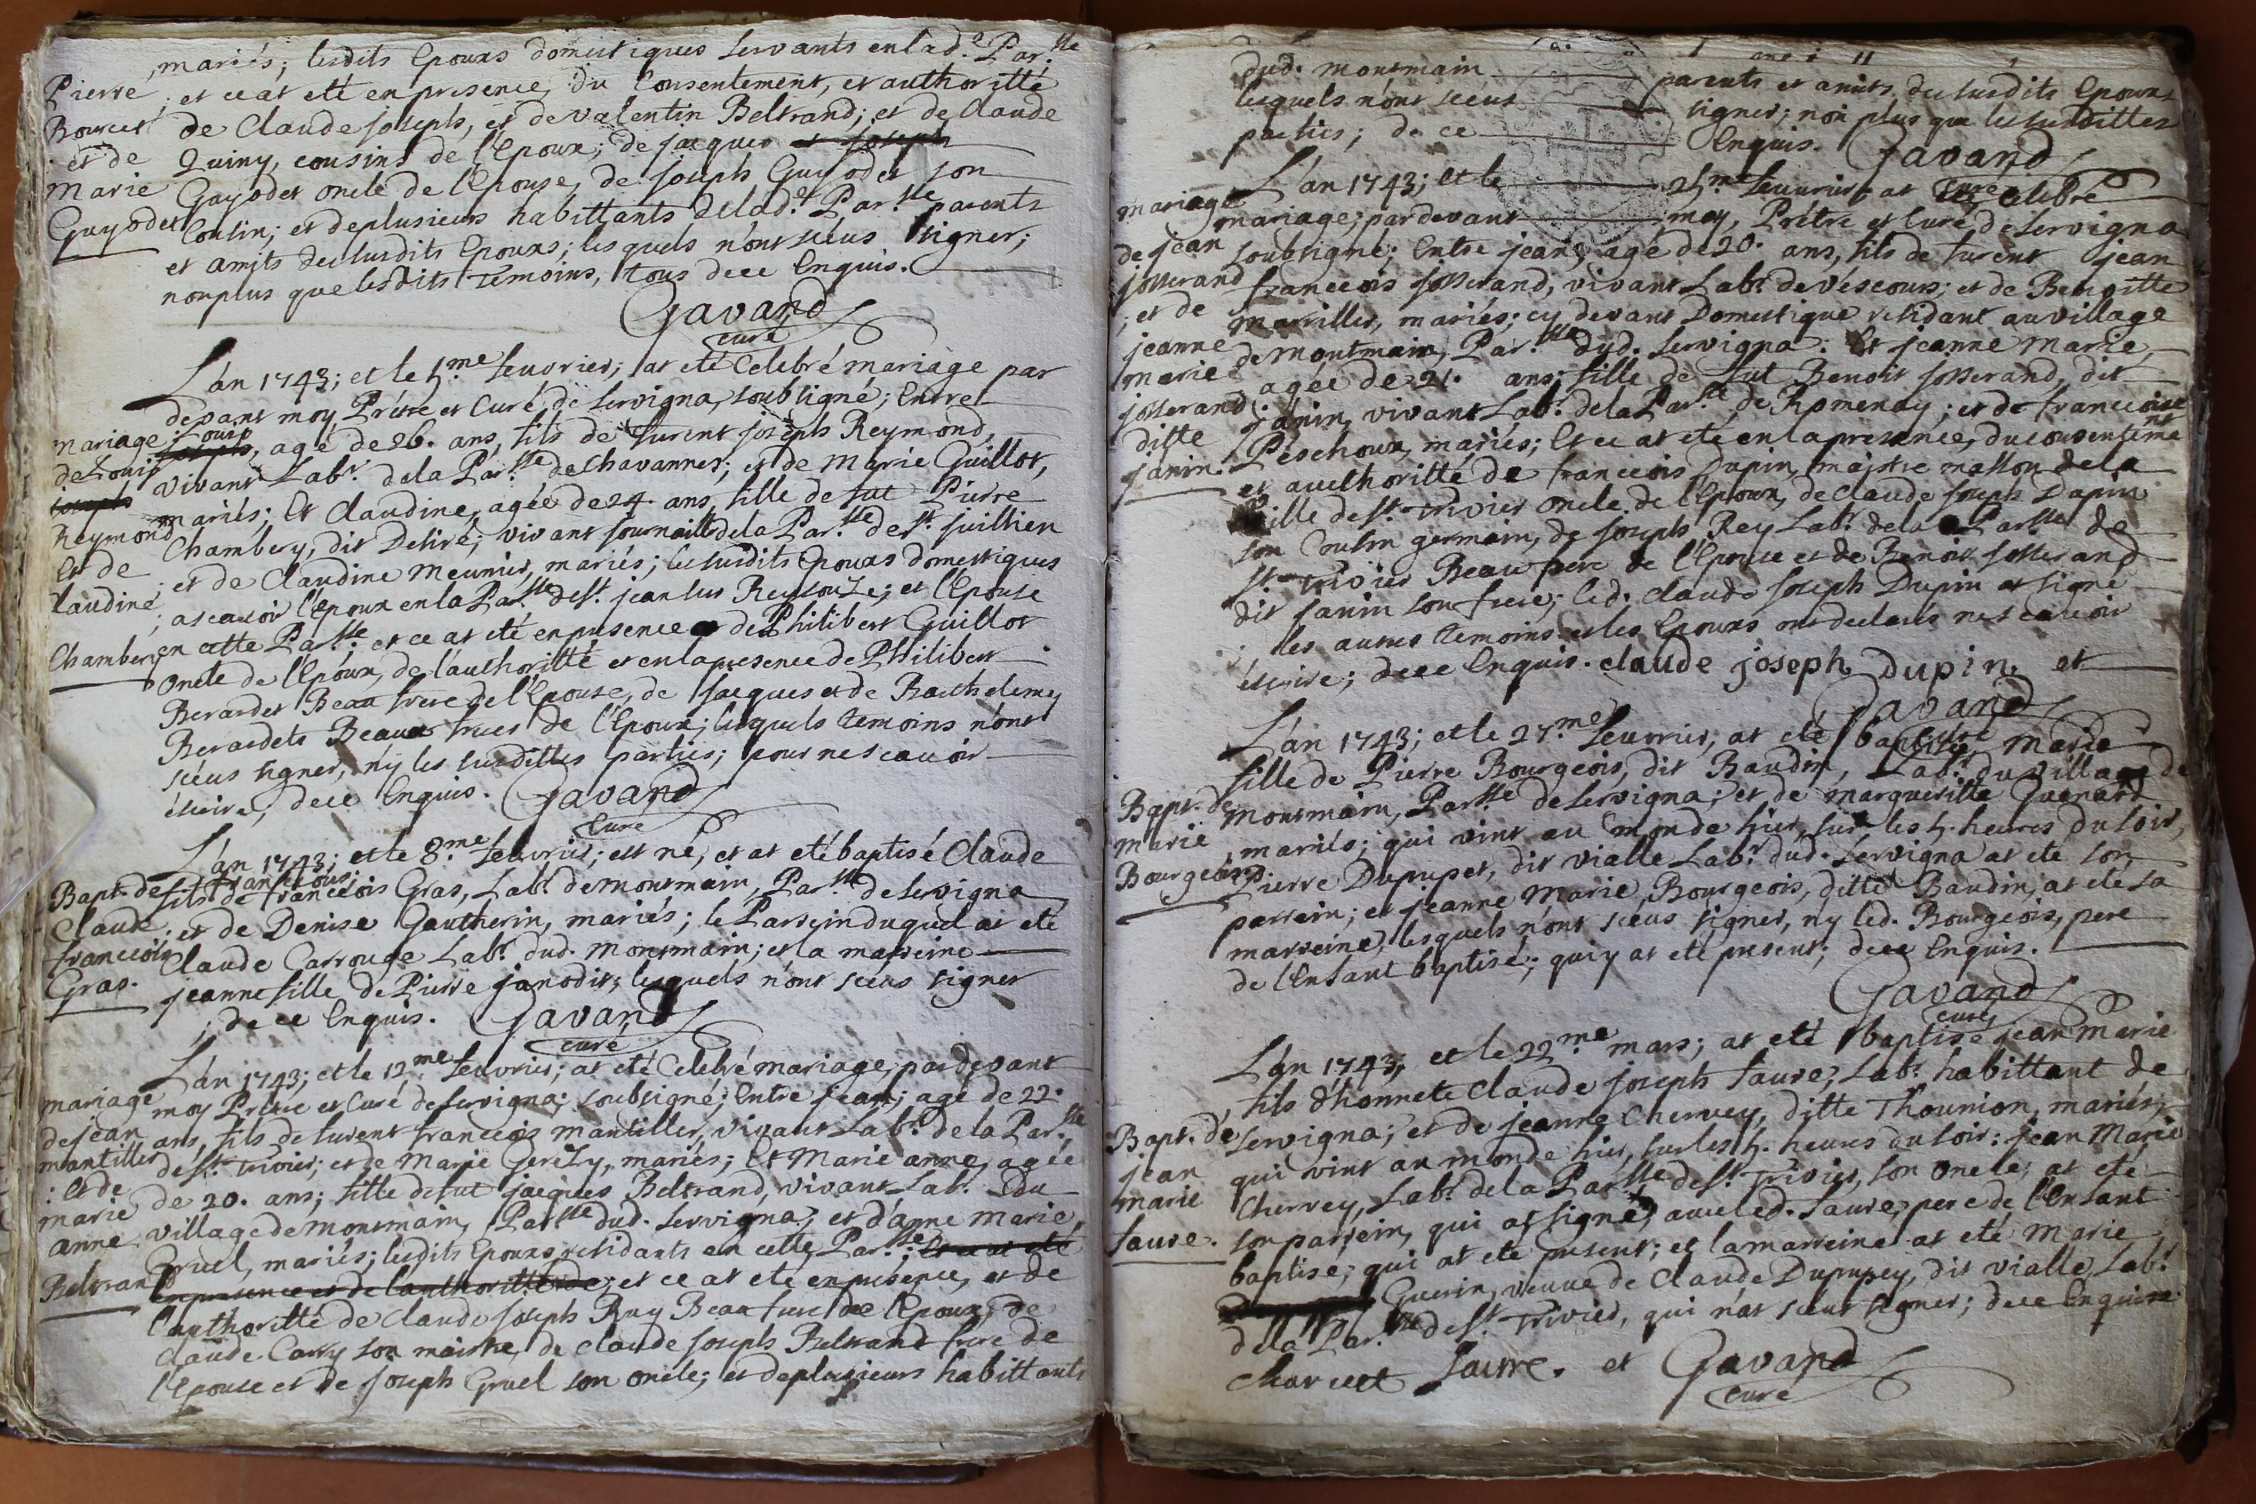 mariés; lesdits Epouxs domestiques servants en lad.e Par.sse
Pierre
Bourcet
et de
Marie
Guyodet
; et ce at eté en presence, du Consentement, et authoritté
de Claude joseph, et de valentin Beltrand; et de Claude
Quiny, cousins de l'Epoux; de jacques et joseph
Guyodet oncle de l'Epouse, de joseph Guyodet son
Cousin; et de plusieurs habittants de lad.e Par.sse parents
et amits des susdits Epouxs; lesquels n'ont sceus signer;
nonplus que lesdits Temoins, tous de ce Enquis.
Gavand
curé
L'an 1743; et le 5.me feuvrier; at eté Celebré mariage par
devant moy Prêtre et Curé de Servigna, soubsigné; Entre
mariage
de Louis
joseph
Reymond
Et de
Claudine
Chambery
Louis
joseph, agé de 26. ans, fils de furent joseph Reymond,
vivant Lab.r de la Par.sse de Chavannes; et de Marie Guillot,
mariés; Et Claudine, agée de 24. ans, fille de fut Pierre
Chambery, dit Desiré; vivant journaillé de la Par.sse de st. juillien
; et de Claudine Meunier, mariés; les susdits Epouxs domestiques
; ascavoir l'Epoux en la Par.sse de st. jean sus Reyssouze; et l'Epouse
en cette Par.sse et ce at eté en presence de Philibert Guillot
oncle de l'Epoux, de l'authoritté et en la presence de Philibert
Berardet Beau frere de l'Epouse, de jacques et de Barthelemy
Berardets Beaux freres de l'Epoux; lesquels temoins n'ont
scéus signer, n'y les susdittes parties; pour ne scavoir
écrire, de ce Enquis. Gavand
Curé
L'an 1743; et le 8.me feuvrier; est né, et at eté baptisé Claude
Bapt. de
Claude
franceois
Gras.
francéois;
fils de francéois Gras, Lab.r de montmain, Par.sse de Servigna
; et de Denise Gautherin, mariés; le Parrein duquel at eté
Claude Carrouge Lab.r dud. Montmain; et la marreine
jeanne fille de Pierre janodit; lesquels n'ont scéus signer
; de ce Enquis. Gavand
curé
L'an 1743; et le 12.me feuvrier; at eté Celebré mariage; pardevant
mariage
de jean
mantiller
: et de
marie
anne
Beltrand
moy Prêtre et Curé de Servigna; soubsigné; Entre jean; agé de 22.
ans, fils de furent francéois mantiller, vivant Lab.r de la Par.sse
de st. Trivier; et de Marie Gerézy, mariés; Et Marie anne, agée
de 20. ans; fille de fut jacques Beltrand, vivant Lab.r du
village de montmain, Par.sse dud. Servigna; et d'anne Marie
Gruel, mariés; lesdits Epouxs residants en cette Par.sse; Et ce at eté
en presence et de l'authoritté de; et ce at eté en presence, et de
l'authoritté de Claude joseph Ruy Beau frere de l'Epoux; de
Claude Carry son maistre, de Claude joseph Beltrand frere de
l'Epouse et de joseph Gruel son oncle; et de plusieurs habittants
dud. montmain parents et amits des susdits Epouxs
lesquels n'ont sceus signer; non plus que les susdittes
parties; de ce Enquis. Gavand
Curé
L'an 1743; et le 25.me feuvrier; at eté celebré
mariage
de jean
josserand
; et de
jeanne
marie
josserand
ditte
janin.
mariage; pardevant moy, Prêtre et Curé de Servigna
soubsigné; Entre jean, agé de 20. ans, fils de furent jean
francéois josserand, vivant Lab.r de véscours; et de Benoitte
Marillier, mariés; cy devant Domestique residant au village
de montmain, Par.sse dud. Servigna: Et jeanne marie,
agée de 21. ans; fille de fut Benoit josserand, dit
janin, vivant Lab.r de la Par.sse de Romenay; et de francéoise
Péschoux, mariés; Et ce at eté en la presence, du consentement
et aucthoritté de francéois Dupin, maistre masson de la
ville de st. Trivier oncle de l'Epoux, de Claude joseph Dupin
son Cousin germain, de joseph Rey Lab.r de la Par.sse de
st. Trivier Beau frere de l'Epouse et de Benoit josserand
dit janin son frere; led. Claude joseph Dupin at signé
; les autres temoins et les Epouxs ont declarés ne scavoir
écrire; de ce Enquis. claude joseph Dupin. et
Gavand
curé
L'an 1743; et le 27.me feuvrier, at eté baptisée Marie
Bapt. de
Marie
Bourgeois
fille de Pierre Bourgeois, dit Baudin, Lab.r du village de
Montmain, Par.sse de Servigna; et de margueritte Guenard
, mariés; qui vint au monde hier, sur les 5. heures du soir,
Pierre Dupupet, dit vialle Lab.r dud. Servigna at eté son
parrein; et jeanne Marie Bourgeois, ditte Baudin, at eté sa
marreine, lesquels n'ont sceus signer, ny led. Bourgeois, pere
de l'Enfant baptisé; qui y at eté present; de ce Enquis.
Gavand
curé
L'an 1743; et le 22.me mars; at eté baptisé jean marie
Bapt. de
jean
marie
faure.
, fils d'honnete Claude joseph faure; Lab.r habittant de
Servigna; et de jeanne Chervey, ditte Thounion, mariés;
qui vint au monde hier, sur les 5. heures du soir: jean Marie
Chervey, Lab.r de la Par.sse de st. Trivier, son oncle, at eté
son parrein, qui at signé, avec led. faure, pere de l'Enfant
baptisé; qui at eté present; et la marreine at eté Marie
Guerin, veuve de Claude Dupupey, dit vialle, Lab.r
de la Par.sse de st. Trivier, qui n'at sceut signer; de ce Enquise.
Charvet faurre. et Gavand
curé